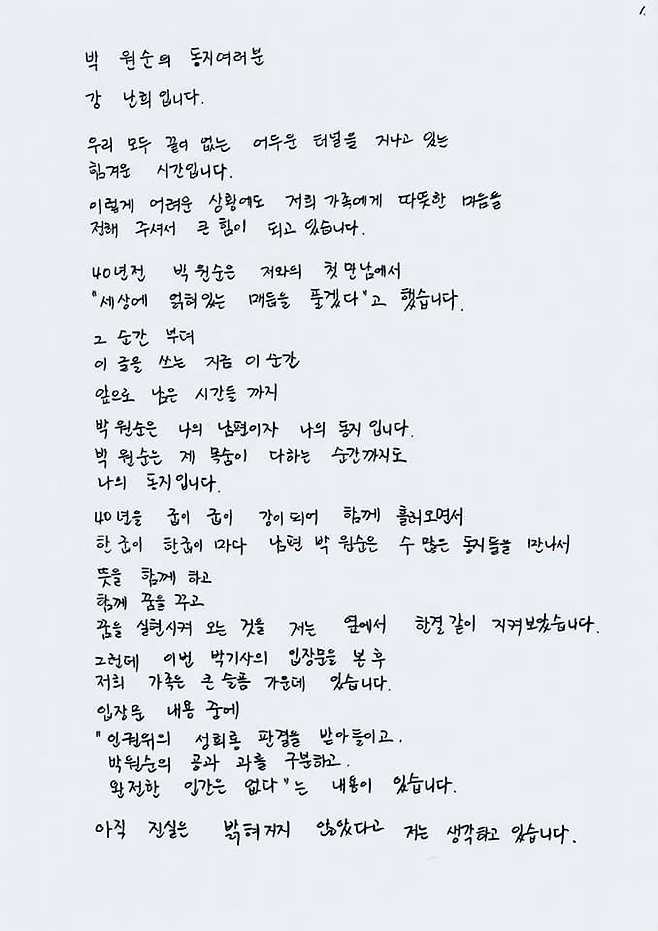 1.
박 원순의 동지여러분
강 난희입니다.
우리 모두 끝이 없는 어두운 터널을 지나고 있는
힘겨운 시간입니다.
이렇게 어려운 상황에도 저희 가족에게 따뜻한 마음을
전해 주셔서 큰 힘이 되고 있습니다.
40년전 박 원순은 저와의 첫만남에서
"세상에 얽혀있는 매듭을 풀겠다"고 했습니다.
그 순간 부터
이 글을 쓰는 지금 이 순간
앞으로 남은 시간들 까지
박 원순은 나의 남편이자 나의 동지 입니다.
박 원순은 제 목숨이 다하는 순간까지도
나의 동지입니다.
40년을 굽이 굽이 강이 되어 함께 흘러오면서
한 굽이 한굽이 마다 남편 박 원순은 수 많은 동지들을 만나서
뜻을 함께 하고
함께 꿈을 꾸고
꿈을 실현시켜 오는 것을 저는 옆에서 한결 같이 지켜보았습니다.
그런데 이번 박기사의 입장문을 본 후
저희 가족은 큰 슬픔 가운데 있습니다.
입장문 내용 중에
"인권위의 성희롱 판결을 받아들이고.
박원순의 공과 과를 구분하고.
완전한 인간은 없다"는 내용이 있습니다.
아직 진실은 밝혀지지 않았다고 저는 생각하고 있습니다.